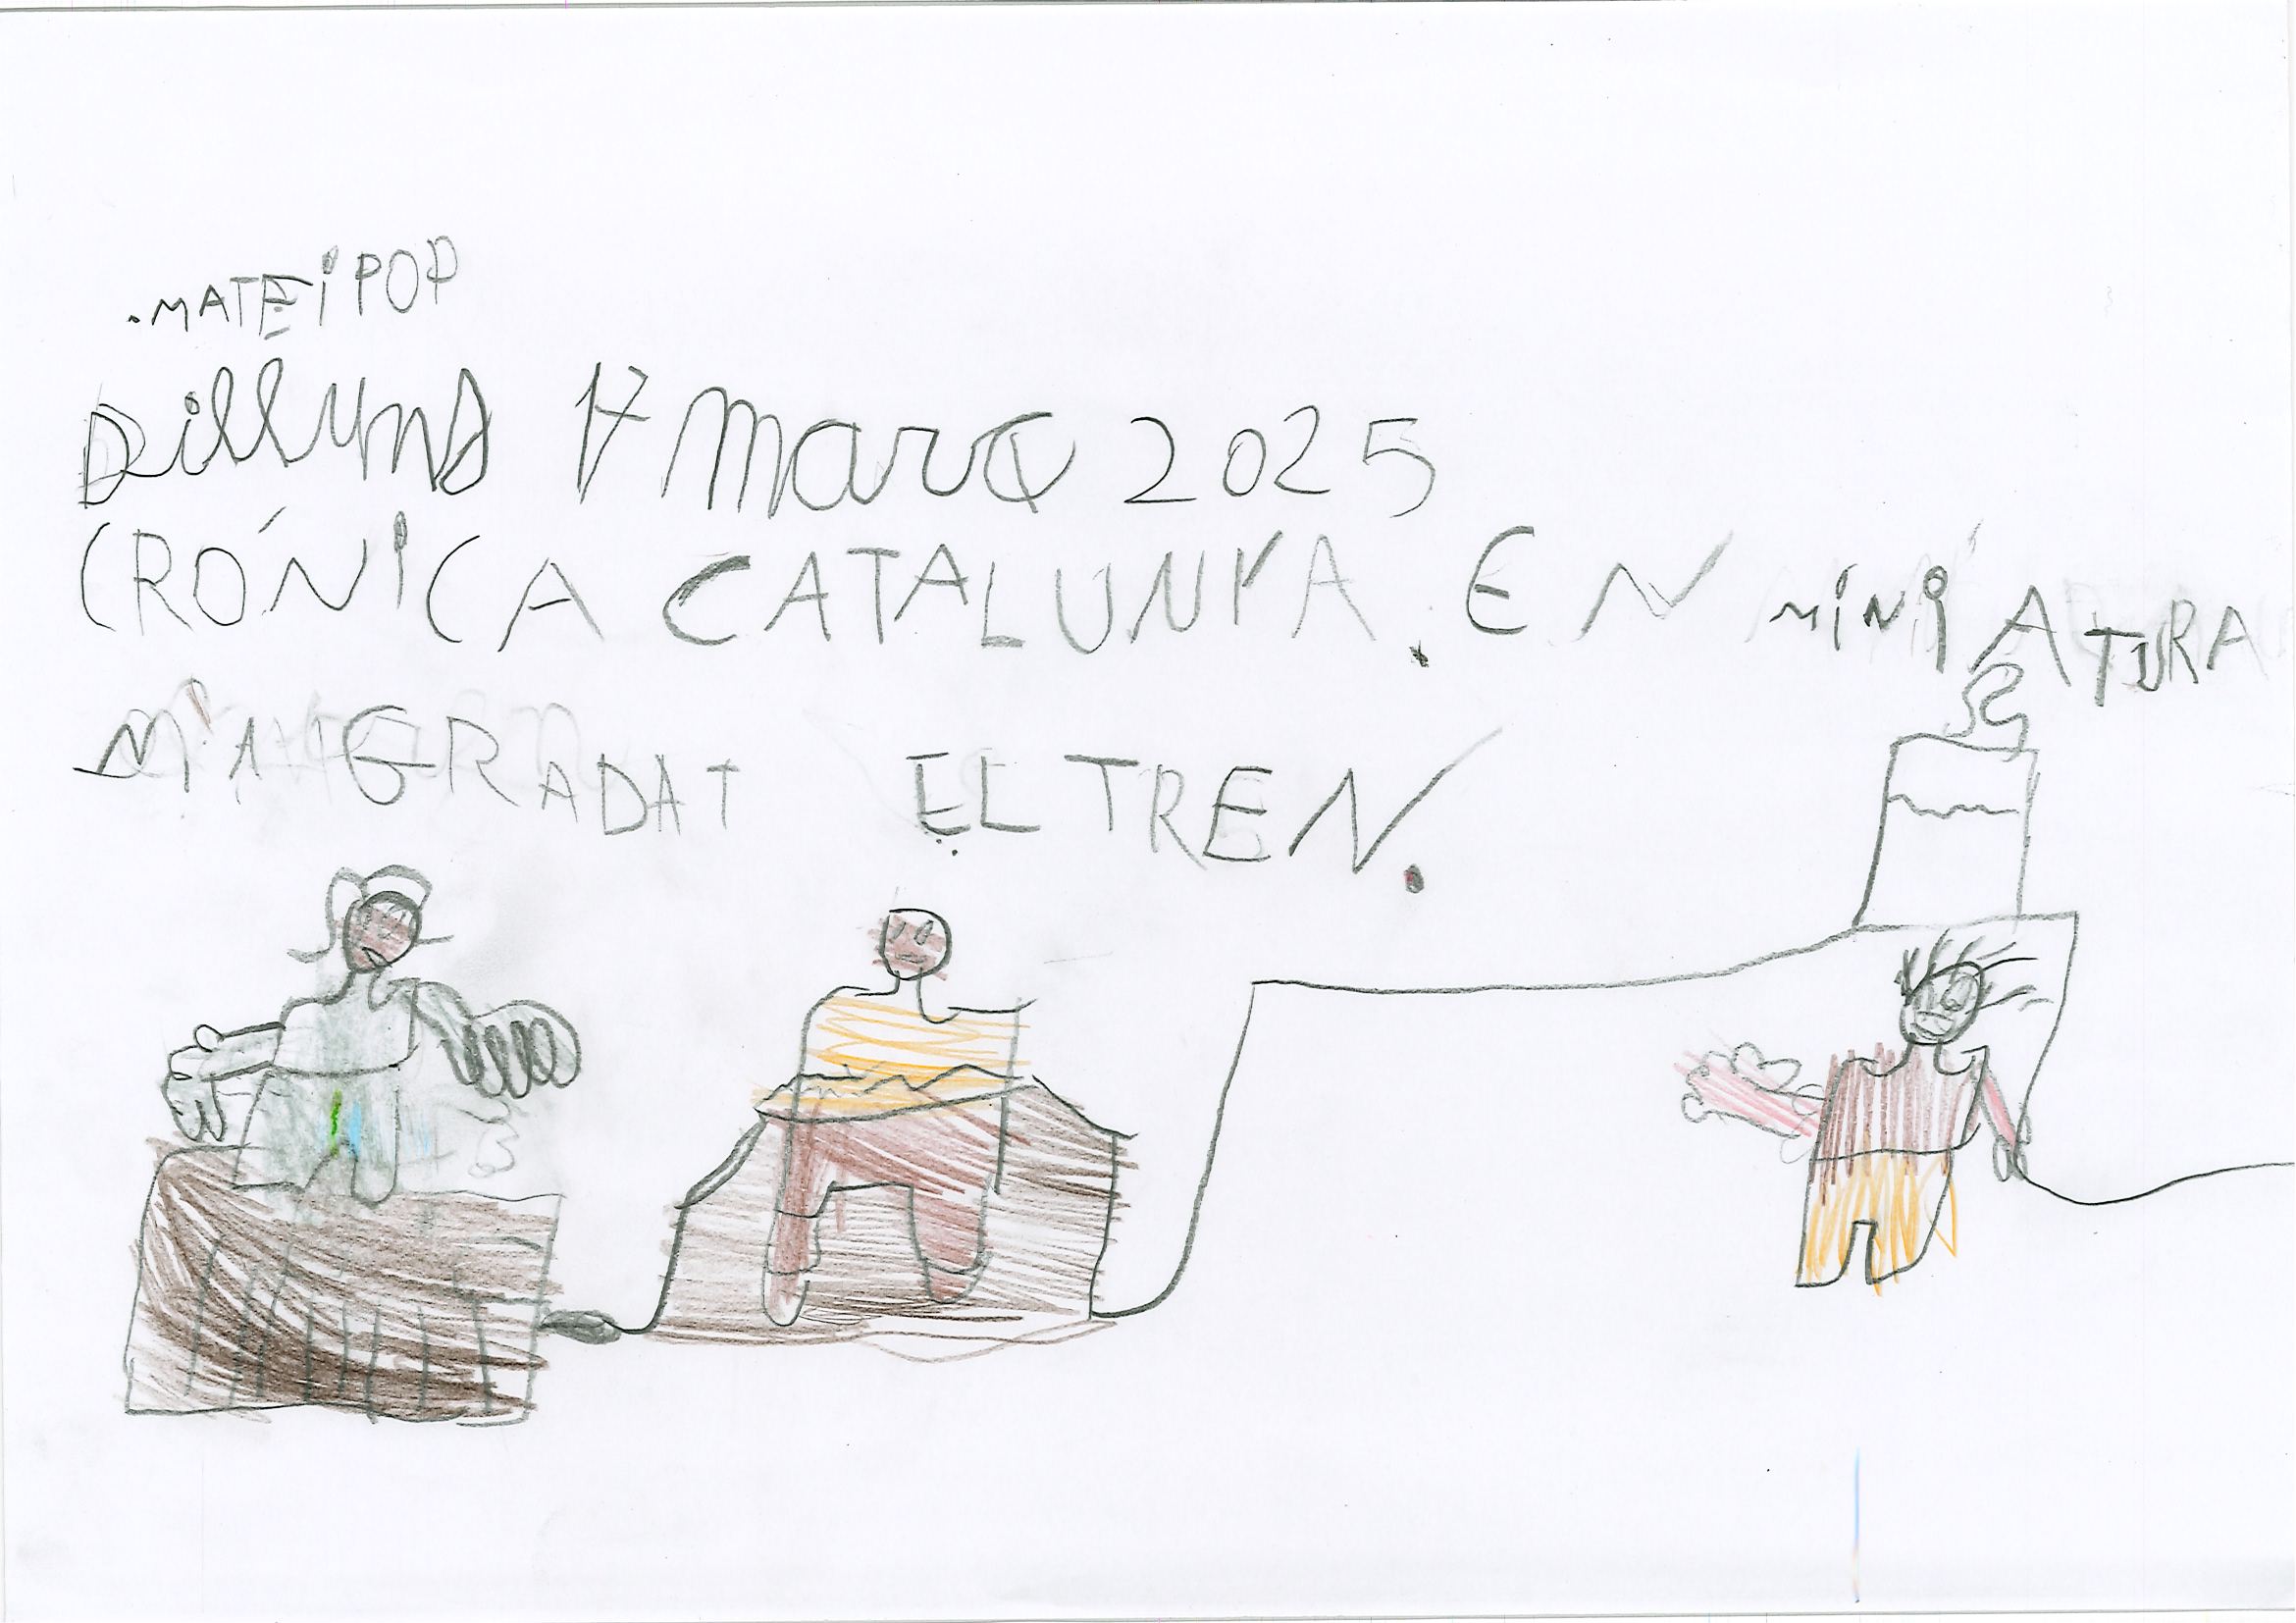 .MATEI POP
Dilluns 17 març 2025
CRÓNICA CATALUNYA. EN MINIATURA
M'A GRADAT EL TREN.